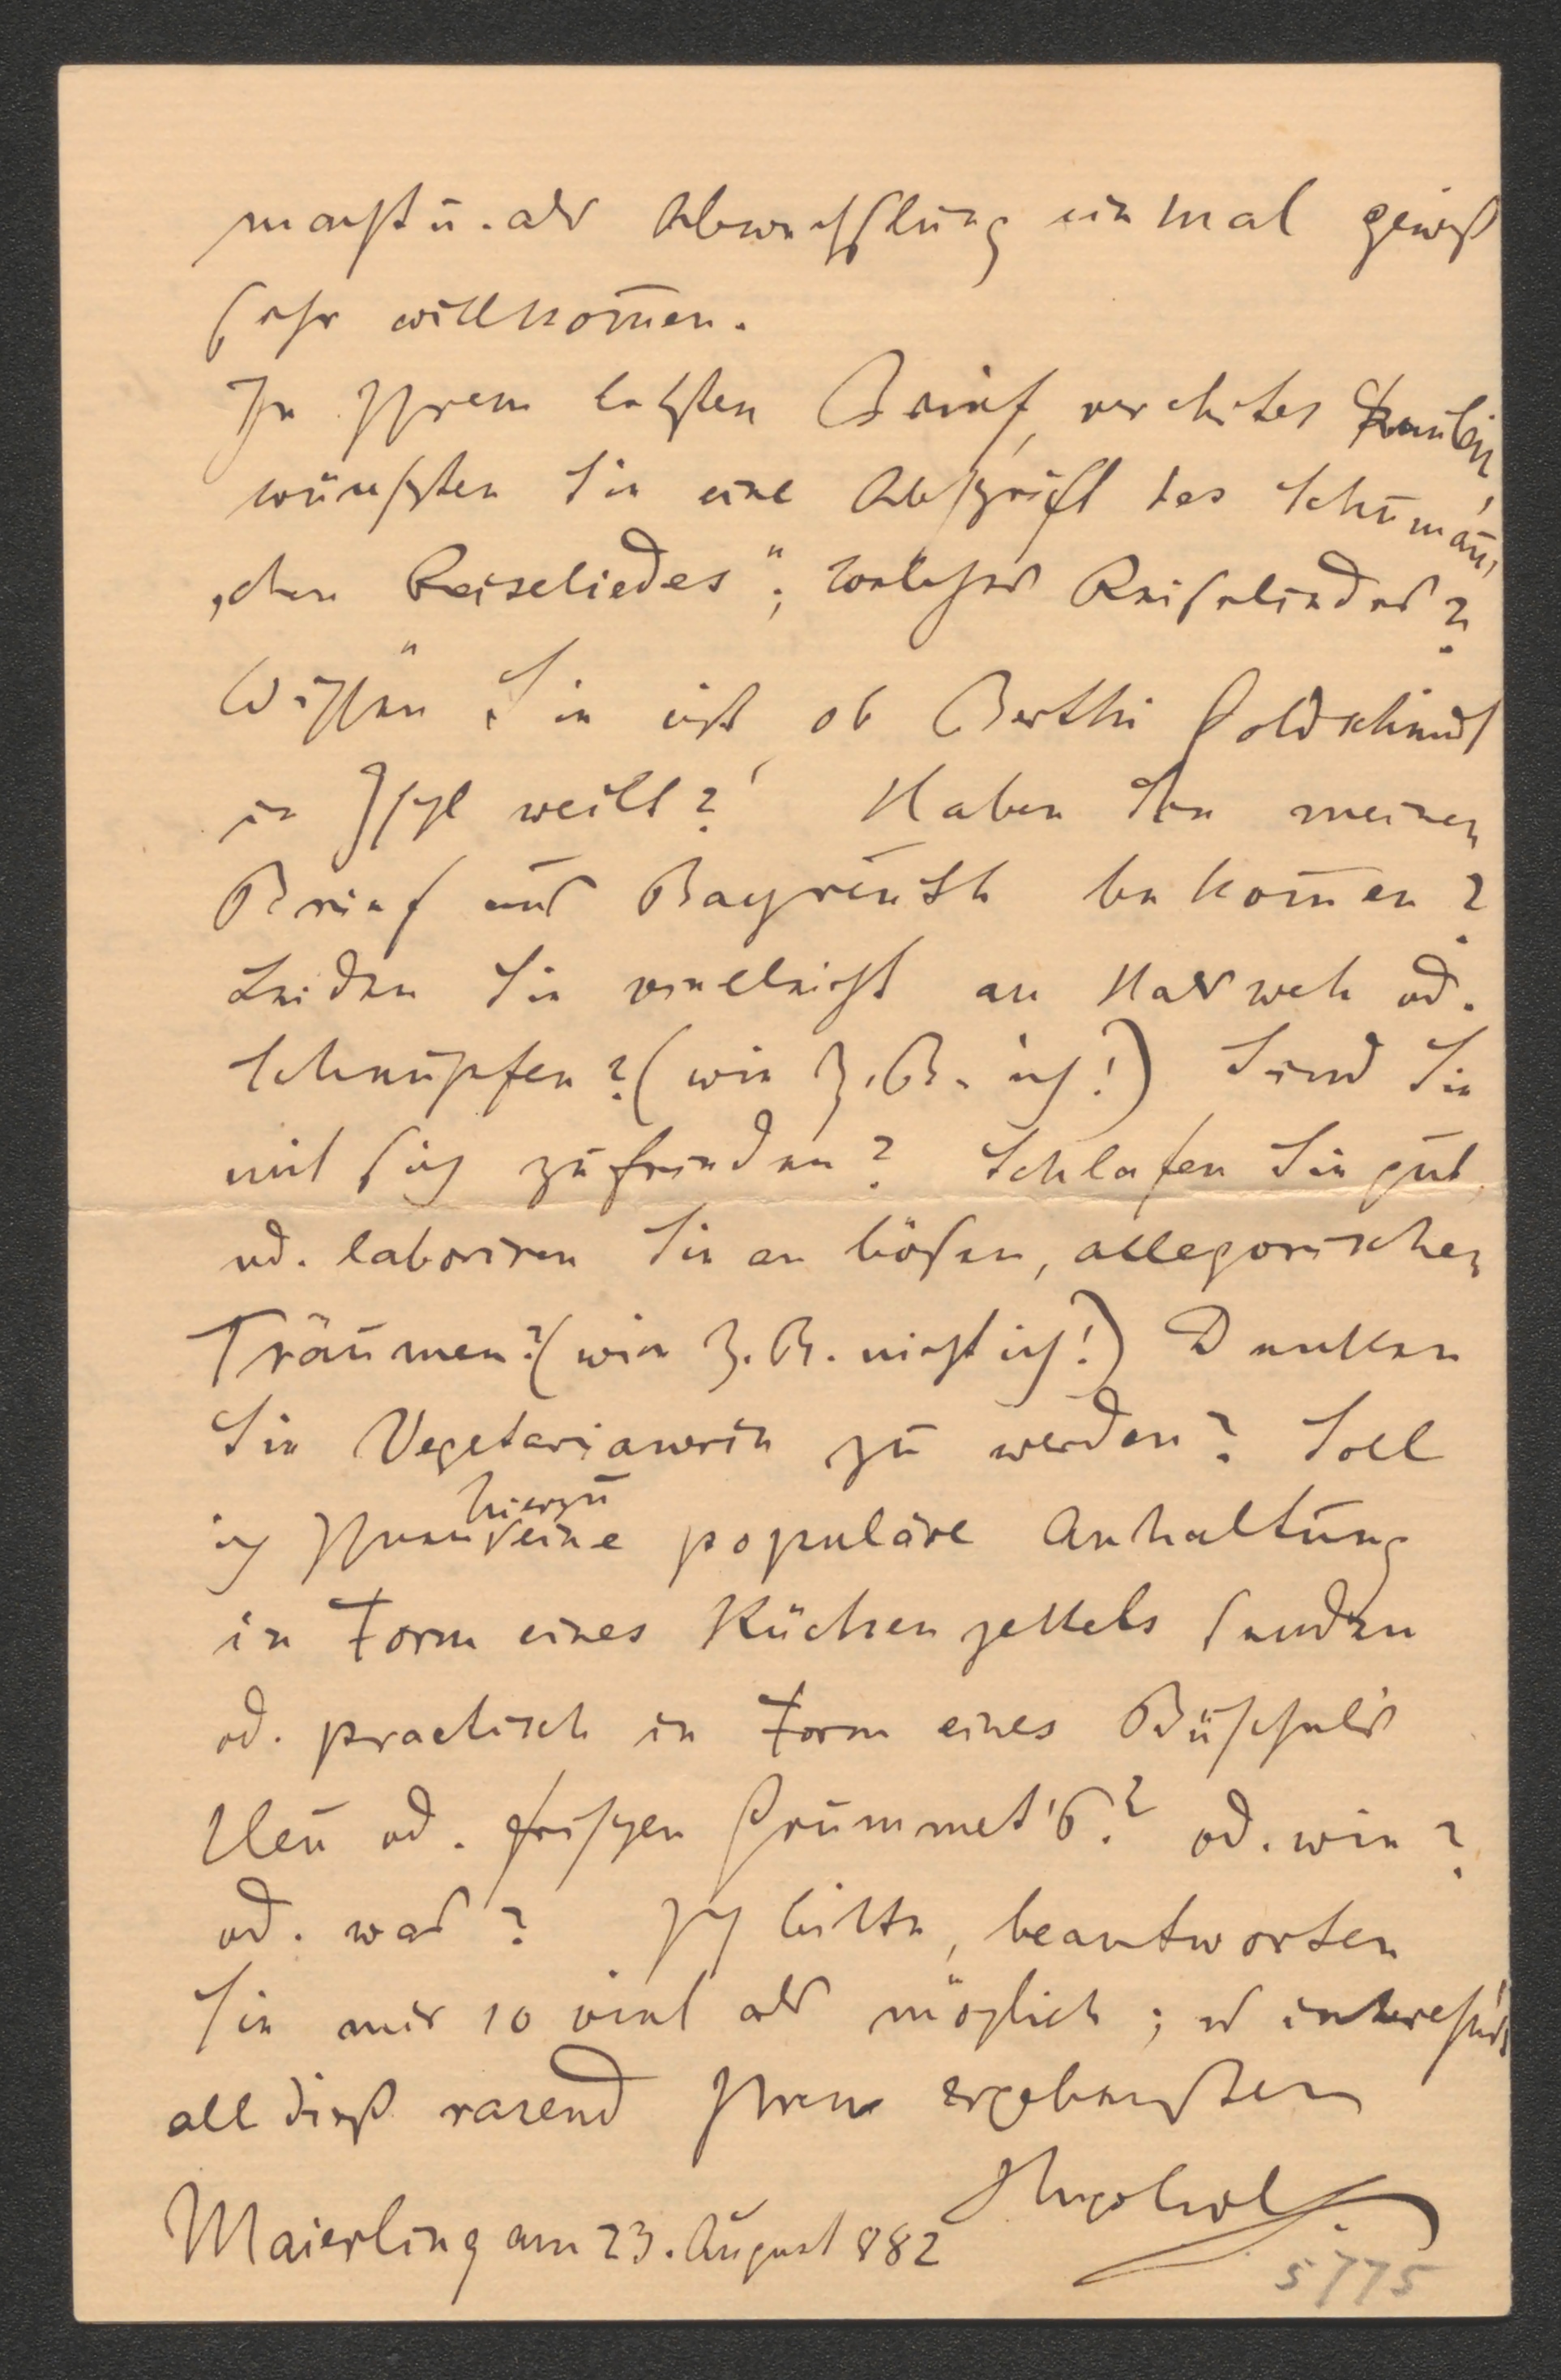 macht u. als Abwechslung einmal gewiß
sehr willkom̄en.
In Ihrem letzten Brief, verehrtes Fräulein,
wünschten Sie eine Abschrift des „Schuman̄'
'schen Reiseliedes"; welches Reiseliedes?
Wissen Sie nicht ob Berthi Goldschmidt
in Ischl weilt? Haben Sie meinen
Brief aus Bayreuth bekom̄en?
Leiden Sie vielleicht an Halsweh od.
Schnupfen? (wie z. B. ich!) Sind Sie
mit sich zufrieden? Schlafen Sie gut,
od. laboriren Sie an bösen, allegorischen
Träumen? (wie z. B. nicht ich!) Denken
Sie Vegetarianerin zu werden? Soll
ich Ihnen hierzu eine populäre Anhaltung
in Form eines Küchenzettels senden
od. practisch in Form eines Büschels
Heu od. frischen Grummet's? od. wie?
od. was? Ich bitte, beantworten
Sie mir so viel als möglich; es interessirt
all dieß rasend Ihren ergebensten
Hugo Wolf
Maierling am 23. August 882
5775